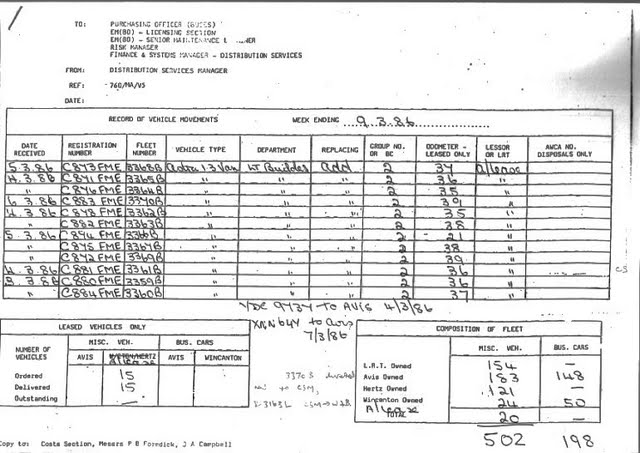 TO: PURCHASING OFFICER (BUSES)
EM(BO) - LICENSING SECTION
EM(BO) - SENIOR
RISK MANAGER
FINANCE & SYSTEMS MANAGER - DISTRIBUTION SERVICES
FROM: DISTRIBUTION SERVICES MANAGER
REF: 760/MA/VS
DATE:
RECORD OF VEHICLE MOVEMENTS WEEK ENDING 9.3.86
DATE RECEIVED REGISTRATION NUMBER FLEET NUMBER VEHICLE TYPE DEPARTMENT REPLACING GROUP NO. OR BC ODOMETER - LEASED ONLY LESSOR OR LRT AWCA NO. DISPOSALS ONLY
5.3.86 C873 FME 3368B Astra 1.3 Van Add 2 34
4.3.86 C871 FME 3365B " " " 2 36 "
" C876 FME 3364B " " " 2 35 "
6.3.86 C883 FME 3370B " " " 2 39 "
4.3.86 C878 FME 3362B " " " 2 35 "
" C882 FME 3363B " " " 2 38 "
5.3.86 C874 FME 3366B " " " 2 21 "
" C875 FME 3367B " " " 2 38 "
" C872 FME 3369B " " " 2 39 "
4.3.86 C881 FME 3361B " " " 2 36 "
3.3.86 C880 FME 3359B " " " 2 36 "
" C884 FME 3360B " " " 2 37 "
TO AVIS 4/3/86
to Avis
7/3/86
LEASED VEHICLES ONLY
NUMBER OF VEHICLES MISC. VEH. BUS. CARS
AVIS AVIS WINCANTON
Ordered 15
Delivered 15
Outstanding —
COMPOSITION OF FLEET
MISC. VEH. BUS. CARS
L.R.T. Owned 154 —
Avis Owned 183 148
Hertz Owned 121 —
Wincanton Owned 24 50
TOTAL 20 —
502 198
Copy to: Costs Section, Messrs P B Forndick, J A Campbell